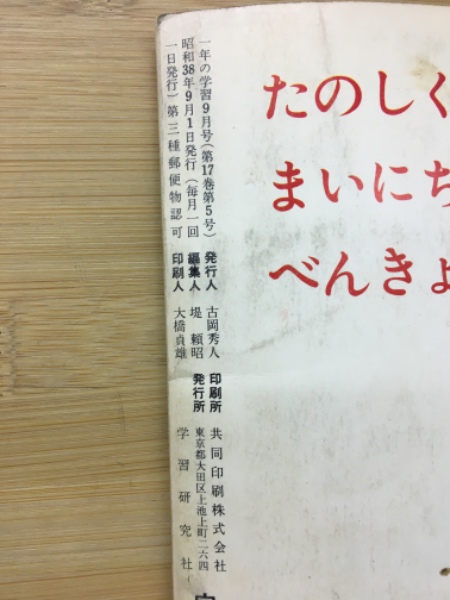 一年の学習9月号(第17巻第5号)
昭和38年9月1日発行(毎月一回
一日発行)第三種郵便物認可
発行人 古岡秀人
編集人 堤 頼昭
印刷人 大橋貞雄
印刷所 共同印刷株式会社
発行所 東京都大田区上池上町二六四
学習研究社
たのしく
まいにち
べんきょ